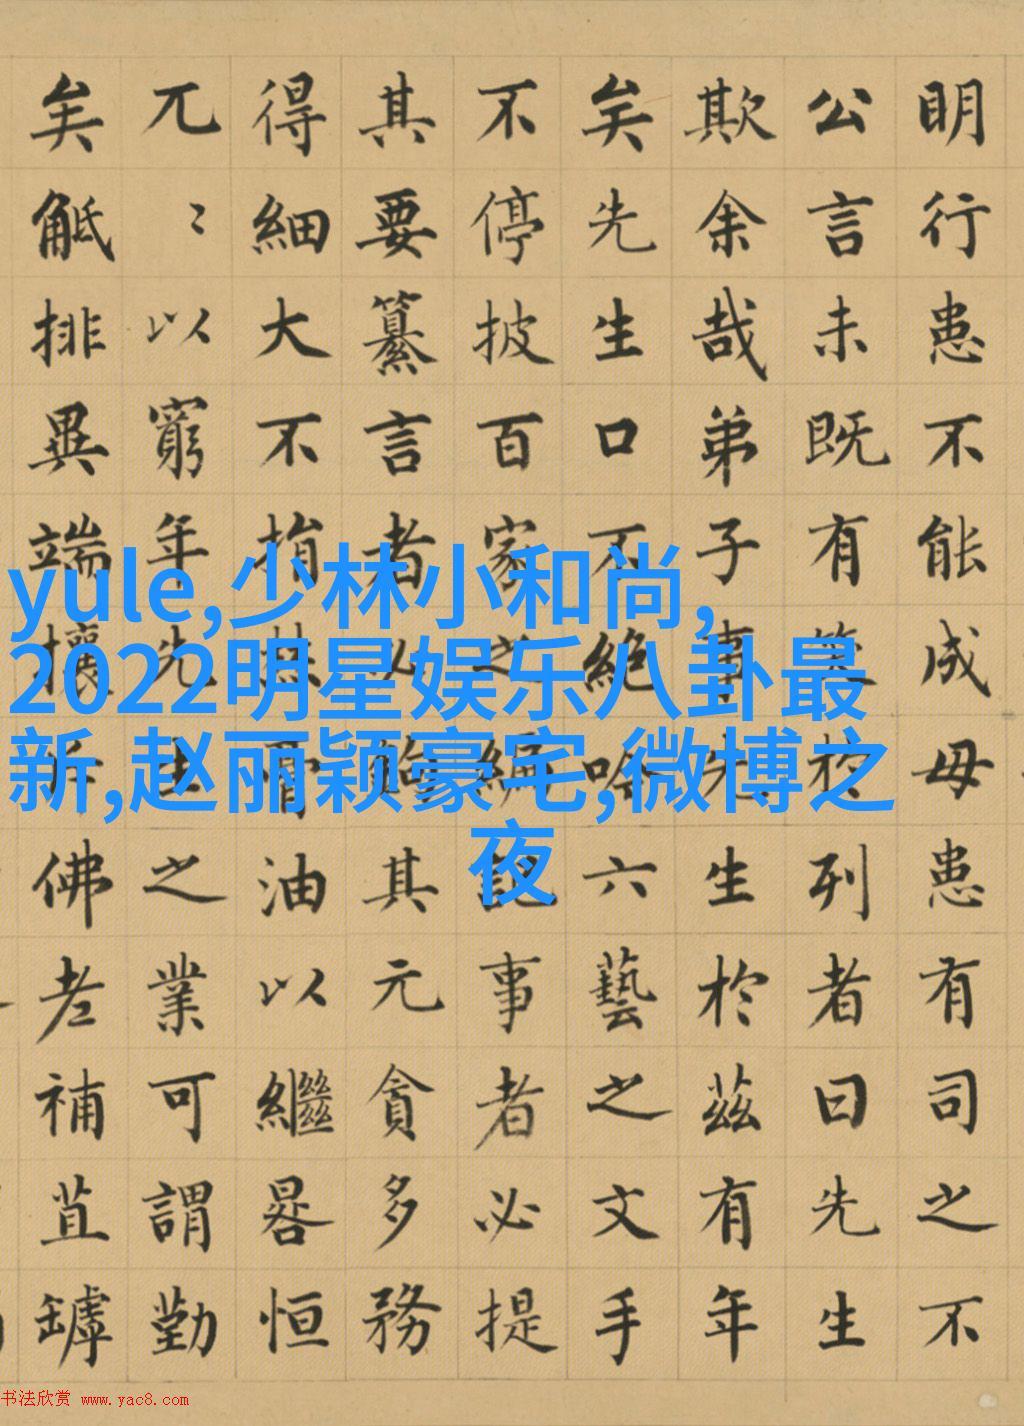 明行患不能成毋患有司之不
公言未既有笑於列者曰先生
欺余哉弟子事先生於茲有年
矣先生口不絶吟六藝之文手
不停披百家之編記事者必提
其要纂言者必鉤其元貪多務
得細大不捐焚膏油以繼晷恒
兀〻以窮年先生之業可謂勤
矣觝排異端攘斥佛老補苴罅
yule,少林小和尚,
2022明星娱乐八卦最
新,赵丽颖豪宅,微博之
夜
书法欣赏 www.yac8.com